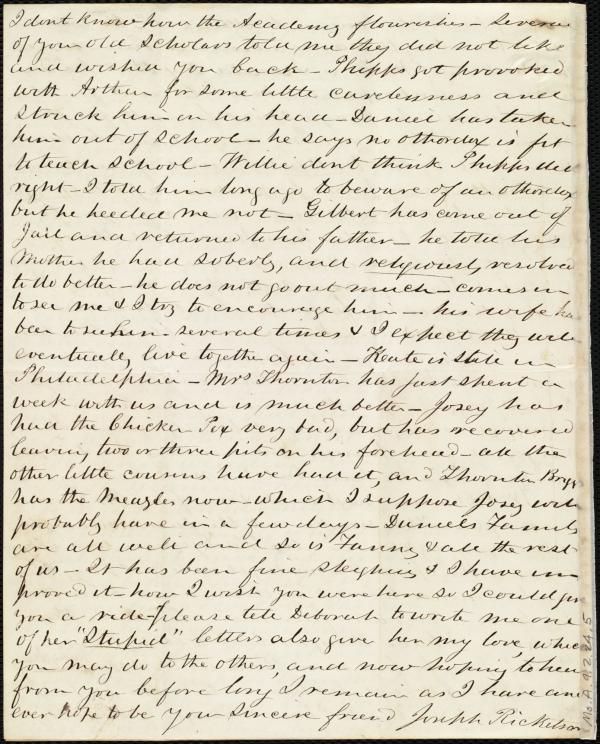 I dont know how the Academy flourishes – Several
of your old Scholars told me they did not like
and wished you back – Phipps got provoked
with Arthur for some little carelessness and
struck him on his head – Daniel has taken
him out of School – he says no othordox is fit
to teach School – Willie dont think Phipps did
right – I told him long ago to beware of an othordox
but he heeded me not – Gilbert has come out of
Jail and returned to his father – he told his
Mother he had soberly, and religiously resolved
to do better – he does not go out much – comes in
to see me & I try to encourage him – his wife has
been to see him several times & I expect they will
eventually live together again – Kate is still in
Philadelphia – Mrs Thornton has just spent a
week with us and is much better – Josey has
had the Chicken Pox very bad, but has recovered
leaving two or three pits on his forehead – all the
other little cousins have had it, and Thornton Briggs
has the Meazles now – which I suppose Josey will
probably have in a few days – Daniels Family
are all well and so is Fanny & all the rest
of us – It has been fine sleighing & I have im
proved it – how I wish you were here so I could give
you a ride – please tell Deborah to write me one
of her "Stupid" letters also give her my love, which
you may do to the others, and now hoping to hear
from you before long I remain as I have and
ever hope to be your sincere friend Joseph Ricketson
Ms. A. 9.2.24.5